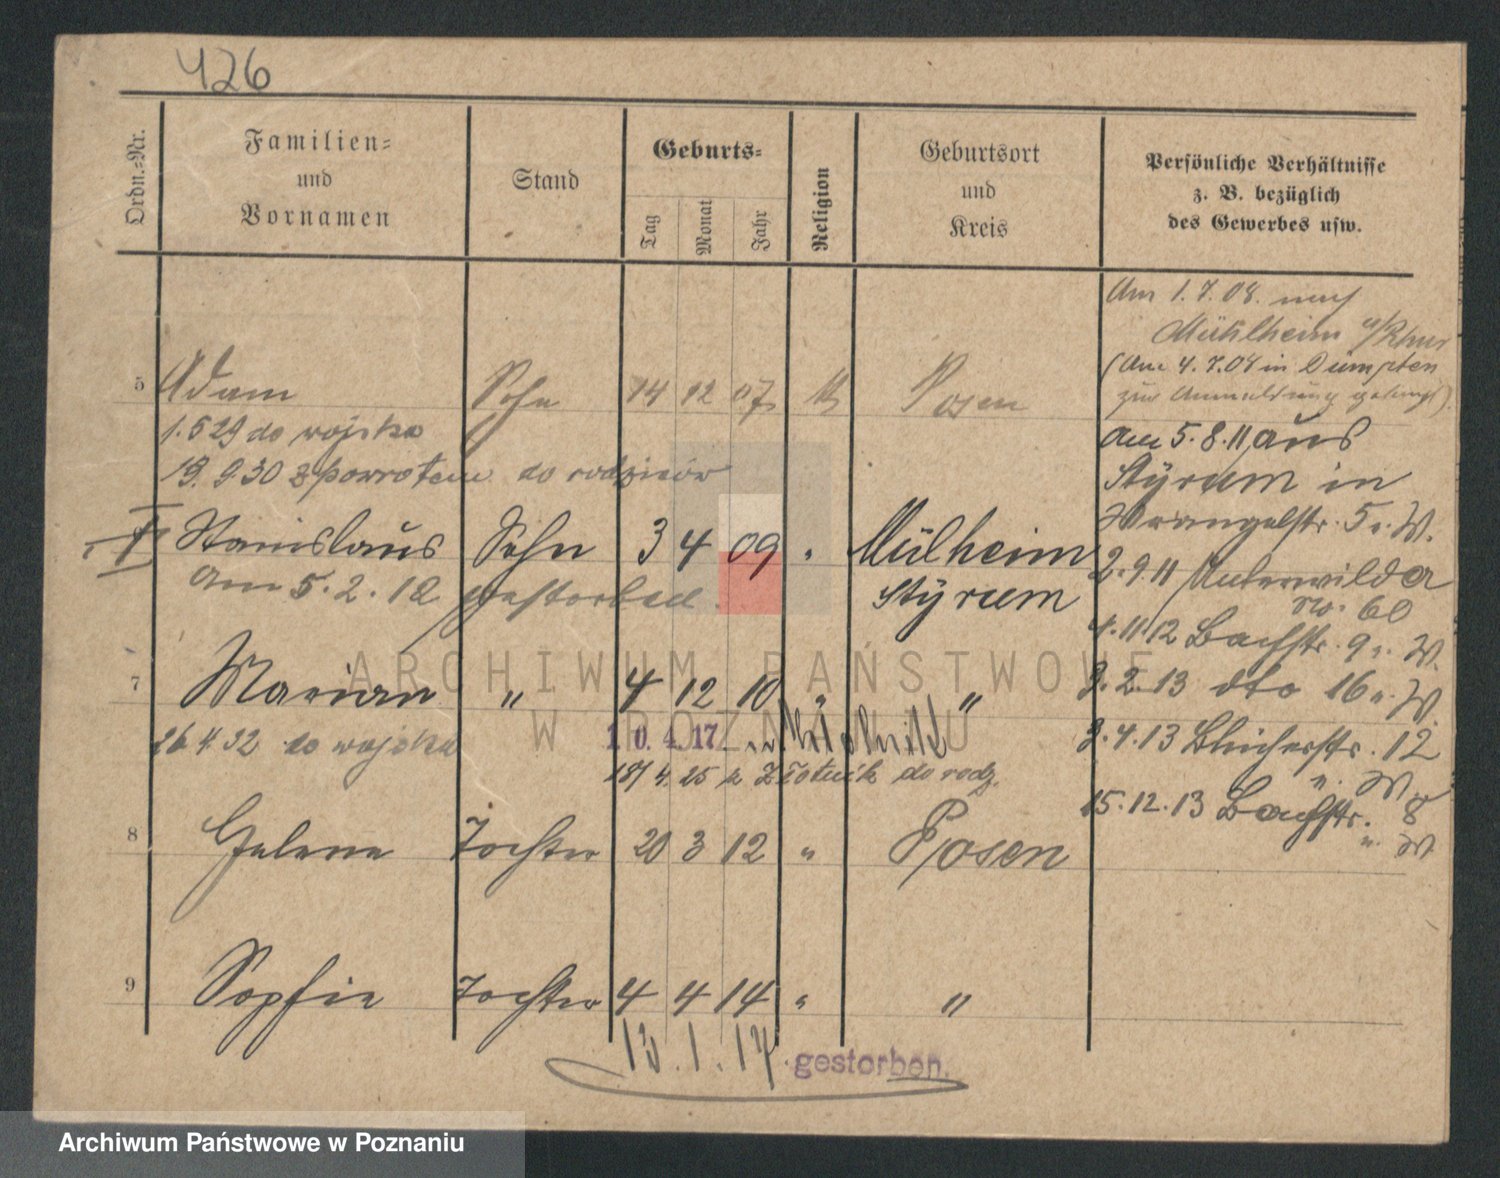 426
Ordn.-Nr.
Familien-
und
Vornamen
Stand
Geburts-
Tag
Monat
Jahr
Religion
Geburtsort
und
Kreis
Persönliche Verhältnisse
z. B. bezüglich
des Gewerbes usw.
Am 1.7.08. nach
Mühlheim a/Rhur
(Am 4.7.08 in Dümpten
zur Anmeldung gelangt).
5 Adam Sohn 14 12 07 Posen
1.5 29 do wojska
19.9.30 z powrotem do rodziców
am 5.8.11 aus
Styrum in
Wrangelstr. 5 v. W.
6 Stanislaus Sohn 3 4 09 " Mülheim
Styrum
am 5.2.12 gestorben.
2.9.11 Unterwilda
No. 60
4.11.12 Bachstr. 9 v. W.
7 Marian " 4 12 10 " "
3.2.13 dto 16 v. W.
26.4.32 do wojska
10.4.17
18/4.25 z Złotnik do rodz.
3.4.13 Blücherstr. 12
v. W.
15.12.13 Bachstr. 8
v. W.
8 Helene Tochter 20 3 12 " Posen
9 Sophie Tochter 4 4 14 " "
13.1.17. gestorben.
ARCHIWUM PAŃSTWOWE
W POZNANIU
Archiwum Państwowe w Poznaniu